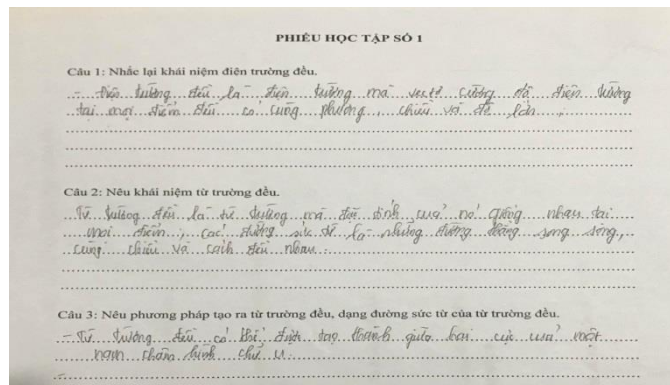 PHIẾU HỌC TẬP SỐ 1
Câu 1: Nhắc lại khái niệm điện trường đều.
- Điện trường đều là điện trường mà vectơ cường độ điện trường
tại mọi điểm đều có cùng phương, chiều và độ lớn.
Câu 2: Nêu khái niệm từ trường đều.
Từ trường đều là từ trường mà đặc tính của nó giống nhau tại
mọi điểm, các đường sức từ là những đường thẳng song song,
cùng chiều và cách đều nhau.
Câu 3: Nêu phương pháp tạo ra từ trường đều, dạng đường sức từ của từ trường đều.
- Từ trường đều có thể được tạo thành giữa hai cực của một
nam châm hình chữ U.